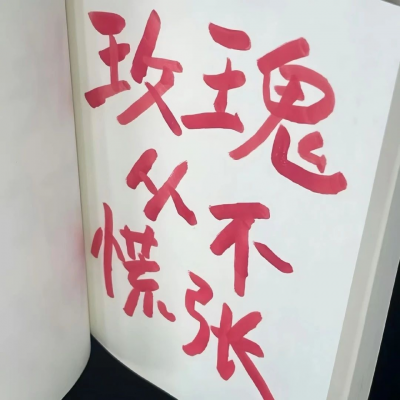 玫瑰
从不
慌张